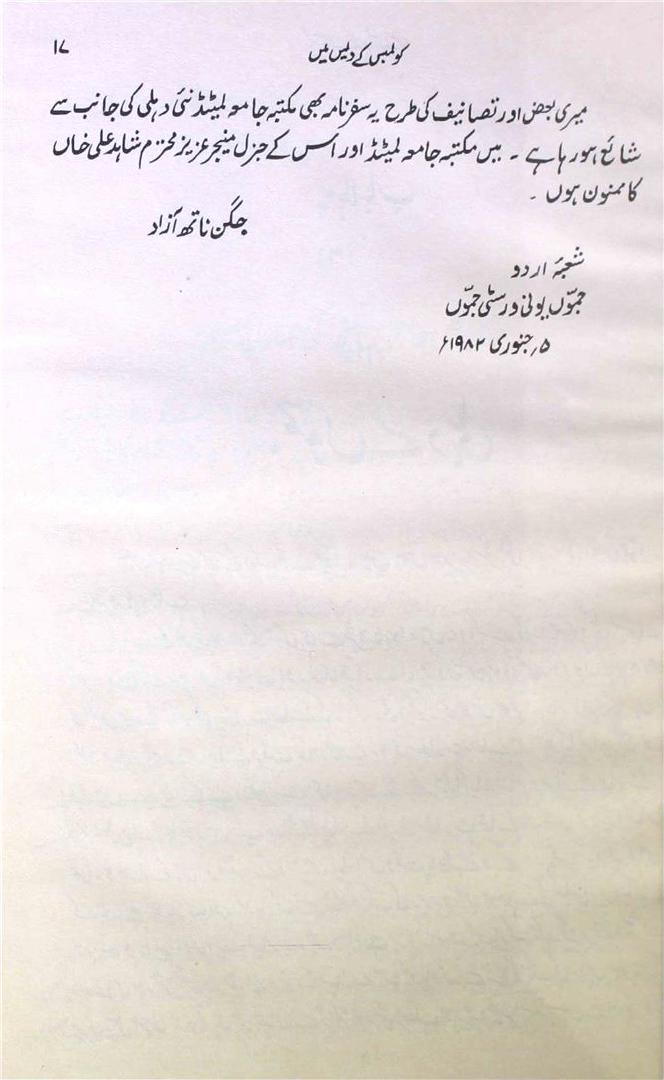 کولمبس کے دیس میں
۱۷
میری بعض اور تصانیف کی طرح یہ سفرنامہ بھی مکتبہ جامعہ لمیٹڈ نئی دہلی کی جانب سے
شائع ہو رہا ہے ۔ میں مکتبہ جامعہ لمیٹڈ اور اس کے جنرل منیجر عزیز محترم شاہد علی خاں
کا ممنون ہوں ۔
جگن ناتھ آزاد
شعبۂ اردو
جموّں یونی ورسٹی جموّں
۵؍ جنوری ۱۹۸۲ء